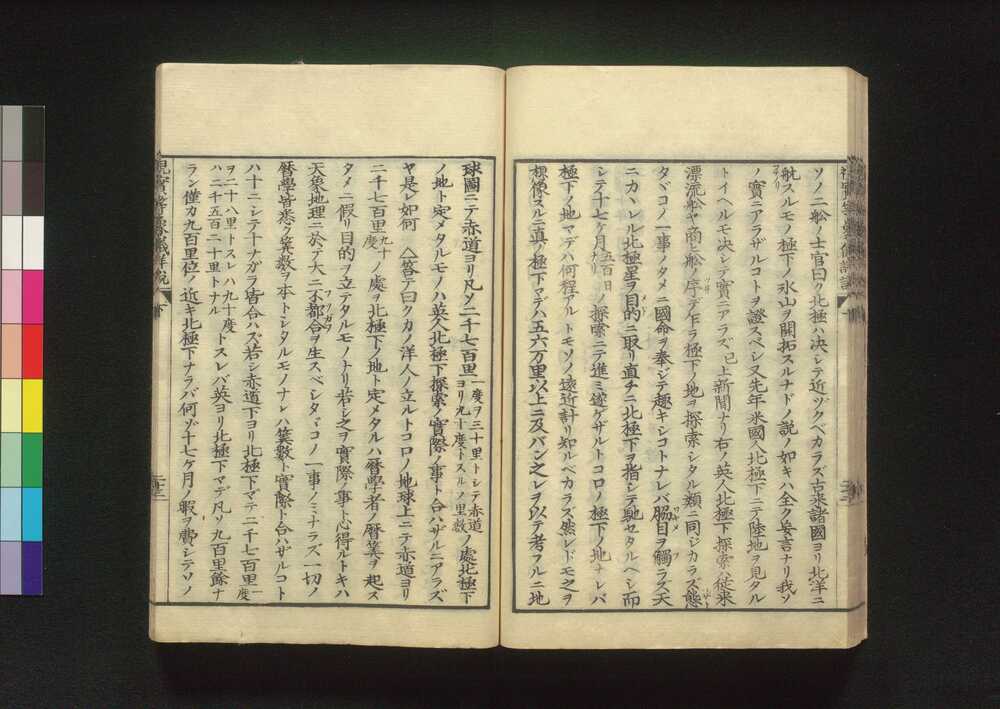 ソノ二舩ノ士官曰ク北極ハ决シテ近ヅクベカラズ古来諸國ヨリ北洋ニ
航スルモノ極下ノ氷山ヲ開拓スルナドノ説ノ如キハ全ク妄言ナリ我ソ
ノ實ニアラザルコトヲ證スベシ又先年米國人北極下ニテ陸地ヲ見タル
トイヘルモ决シテ實ニアラズ已上新聞ナリ右ノ英人北極下探索ノ従来
漂流舩ヤ商上舩ノ序デ乍ラ極下ノ地ヲ探索シタル類ニ同ジカラズ態
タゞコノ一事ノタメニ國命ヲ奉ジテ趣キシコトナレバ脇目ヲ觸ラズ天
ニカヽレル北極星ヲ目的ニ取リ直チニ北極下ヲ指シテ馳セタルヘシ而
シテ十七ケ月五百日ナリノ探索ニテ進ミ遂ゲザルトコロノ極下ノ地ナレバ
極下ノ地マデハ何程アルトモソノ遠近計リ知ルベカラズ然レドモ之ヲ
想像スルニ真ノ極下マデハ五六万里以上ニ及バン之レヲ以テ考フルニ地
球圖ニテ赤道ヨリ凡ソ二千七百里一度ヲ三十里トシテ赤道ヨリ九十度トスルノ里数ノ處北極下
ノ地ト定メタルモノハ英人北極下探索ノ實際ノ事ト合ハザルニアラズ
ヤ是レ如何 △答テ曰クカノ洋人ノ立ルトコロノ地球上ニテ赤道ヨリ
二千七百里九十度ノ處ヲ北極下ノ地ト定メタルハ暦學者ノ暦筭ヲ起ス
タメニ假リ目的ヲ立テタルモノナリ若シ之ヲ實際ノ事ト心得ルトキハ
天象地理ニ於テ大ニ不都合ヲ生スベシタヾコノ一事ノミナラズ一切ノ
暦學皆悉ク筭数ヲ本トシタルモノナレハ筭數ト實際ト合ハザルコト
ハ十ニシテ十ナガラ皆合ハズ若シ赤道下ヨリ北極下マデ二千七百里一度
ヲ二十八里トスレハ九十度ハ二千五百二十里トナルトスレバ英ヨリ北極下マデ凡ソ九百里餘ナ
ラン僅カ九百里位ノ近キ北極下ナラバ何ゾ十七ケ月ノ暇ヲ費シテソノ